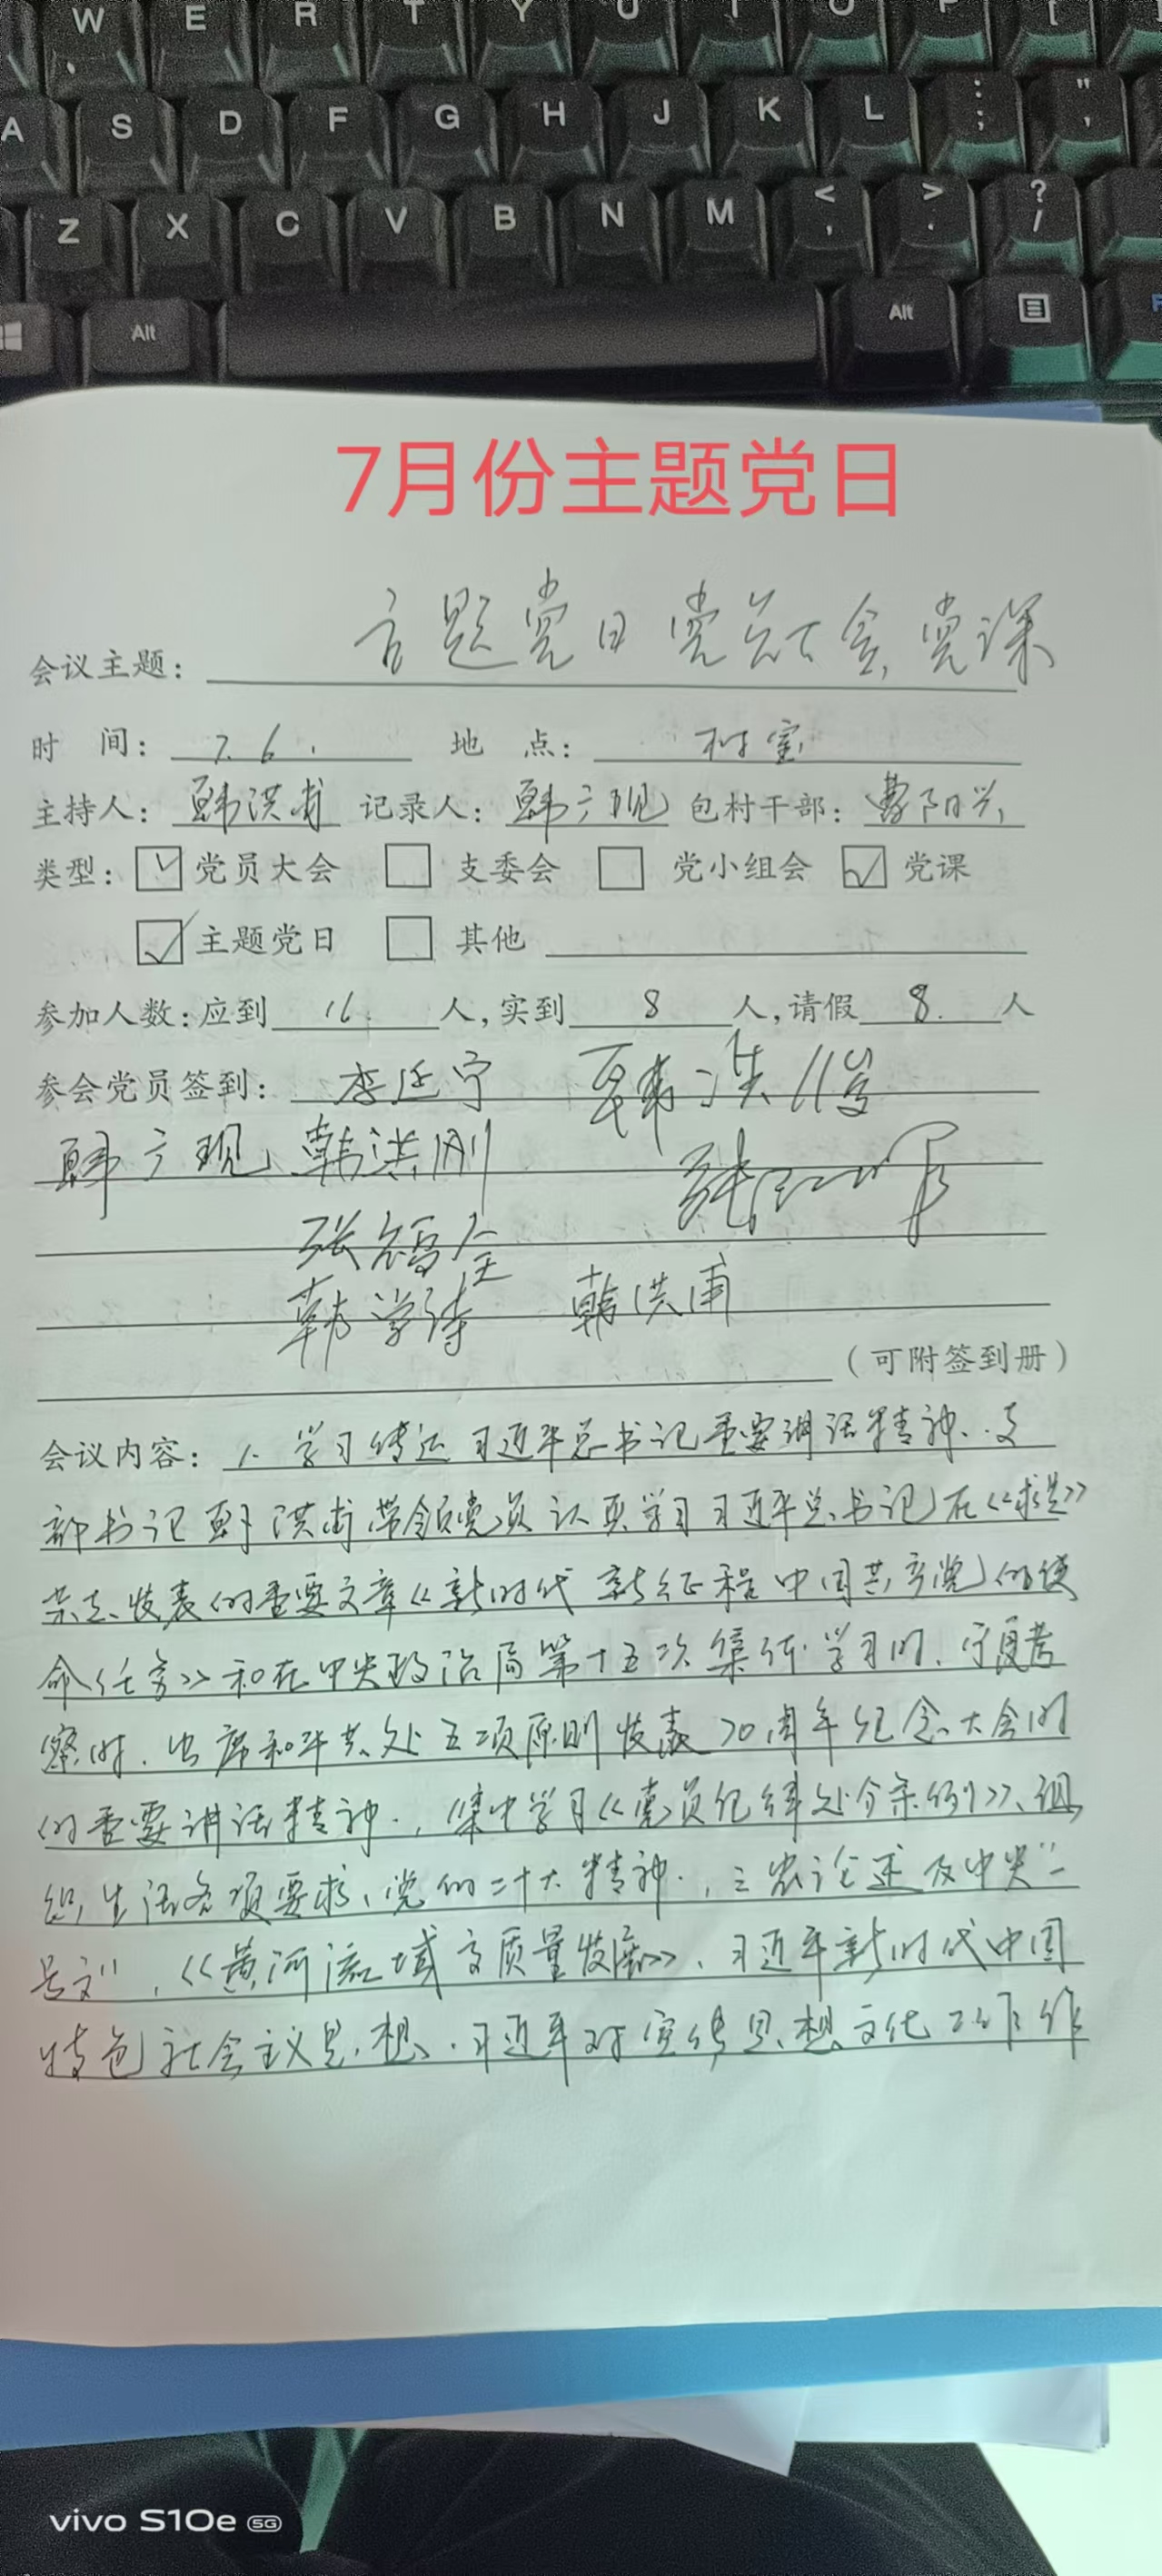 W E R T Y U I O P [
A S D F G H J K L : ; " '
Z X C V B N M < , > . ? /
Alt Alt
7月份主题党日
会议主题: 主题党日 党员大会 党课
时 间: 7.6. 地 点: 村室
主持人: 韩洪甫 记录人: 韩广现 包村干部: 曹阳兴
类型: 党员大会 支委会 党小组会 党课
主题党日 其他
参加人数:应到 16 人,实到 8 人,请假 8. 人
参会党员签到: 李廷宁 韩洪
韩广现 韩洪刚
张福全
韩学诗 韩洪甫
(可附签到册)
会议内容: 1. 学习传达习近平总书记重要讲话精神、支
部书记韩洪甫带领党员认真学习习近平总书记在《求是》
杂志发表的重要文章《新时代新征程中国共产党的使
命任务》和在中央政治局第十五次集体学习时、宁夏考
察时、出席和平共处五项原则发表70周年纪念大会时
的重要讲话精神.,集中学习《党员纪律处分条例》、组
织生活各项要求、党的二十大精神.,三农论述及中央“一
号文”,《黄河流域高质量发展》、习近平新时代中国
特色社会主义思想、习近平对宣传思想文化工作作
vivo S10e 5G